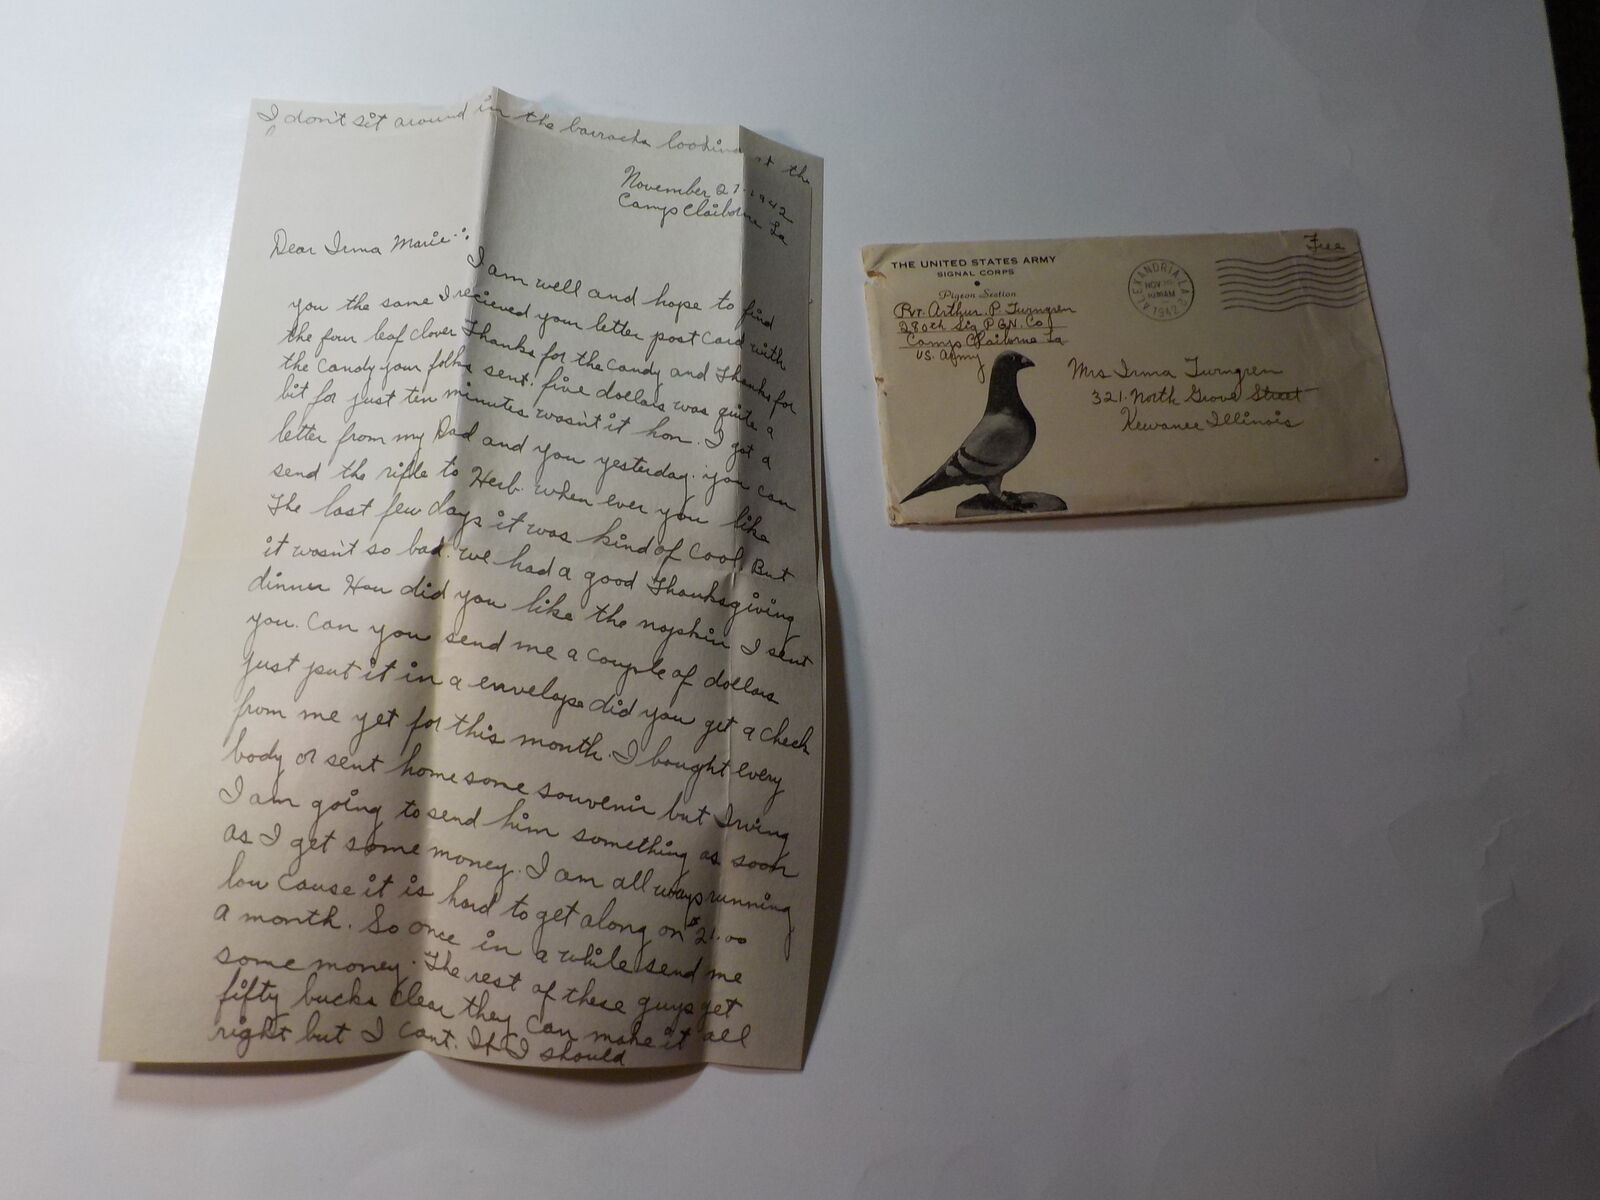 I don't sit around in the barracks looking at the
November 27-1942
Camp Claiborne La
Dear Irma Marie:
I am well and hope to find
you the same I recieved your letter post card with
the four leaf clover Thanks for the candy and Thanks for
the candy your folks sent. five dollars was quite a
bit for just ten minutes wasn't it hon. I got a
letter from my Dad and you yesterday. you can
send the rifle to Herb when ever you like
The last few days it was kind of cool. But
it wasn't so bad. we had a good Thanksgiving
dinner How did you like the napkin I sent
you. Can you send me a couple of dollars
just put it in a envelope did you get a check
from me yet for this month. I bought every
body or sent home some souvenir but Irving
I am going to send him something as soon
as I get some money. I am all ways running
low cause it is hard to get along on $21.00
a month. So once in a while send me
some money. The rest of these guys get
fifty bucks clear they can make it all
right but I cant. If I should
THE UNITED STATES ARMY
SIGNAL CORPS
Pigeon Section
Pvt. Arthur P. Turngren
280th Sig PGN. Co
Camp Claiborne La
US. Army
ALEXANDRIA, LA
NOV
AM
1942
Free
Mrs Irma Turngren
321 North Grove Street
Kewanee Illinois